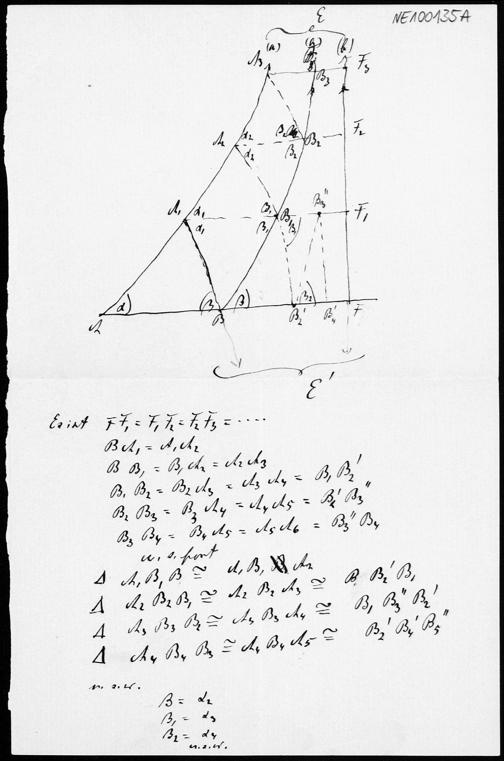 NE100135A
ε
(a) (b)
A₃ B₃ F₃
A₂ α₂ B₂ B₂ F₂
α₂
A₁ α₁ B₁ B₁ B₃'' F₁
α₁ B₁ β
A α) (β B β) B₂' β₂) B₄' F
ε'
Es ist F F₁ = F₁ F₂ = F₂ F₃ = ····
B A₁ = A₁ A₂
B B₁ = B₁ A₂ = A₂ A₃
B₁ B₂ = B₂ A₃ = A₃ A₄ = B₁ B₂'
B₂ B₃ = B₃ A₄ = A₄ A₅ = B₂' B₃''
B₃ B₄ = B₄ A₅ = A₅ A₆ = B₃'' B₄
u. s. fort
Δ A₁ B₁ B ≅ A₁ B₁ A₂
Δ A₂ B₂ B₁ ≅ A₂ B₂ A₃ ≅ B B₂' B₁
Δ A₃ B₃ B₂ ≅ A₃ B₃ A₄ ≅ B₁ B₃'' B₂'
Δ A₄ B₄ B₃ ≅ A₄ B₄ A₅ ≅ B₂' B₄' B₅''
u. s. w.
β = α₂
β₁ = α₃
β₂ = α₄
u. s. w.